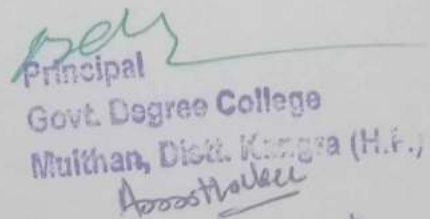 Principal
Govt. Degree College
Multhan, Distt. Kangra (H.P.)